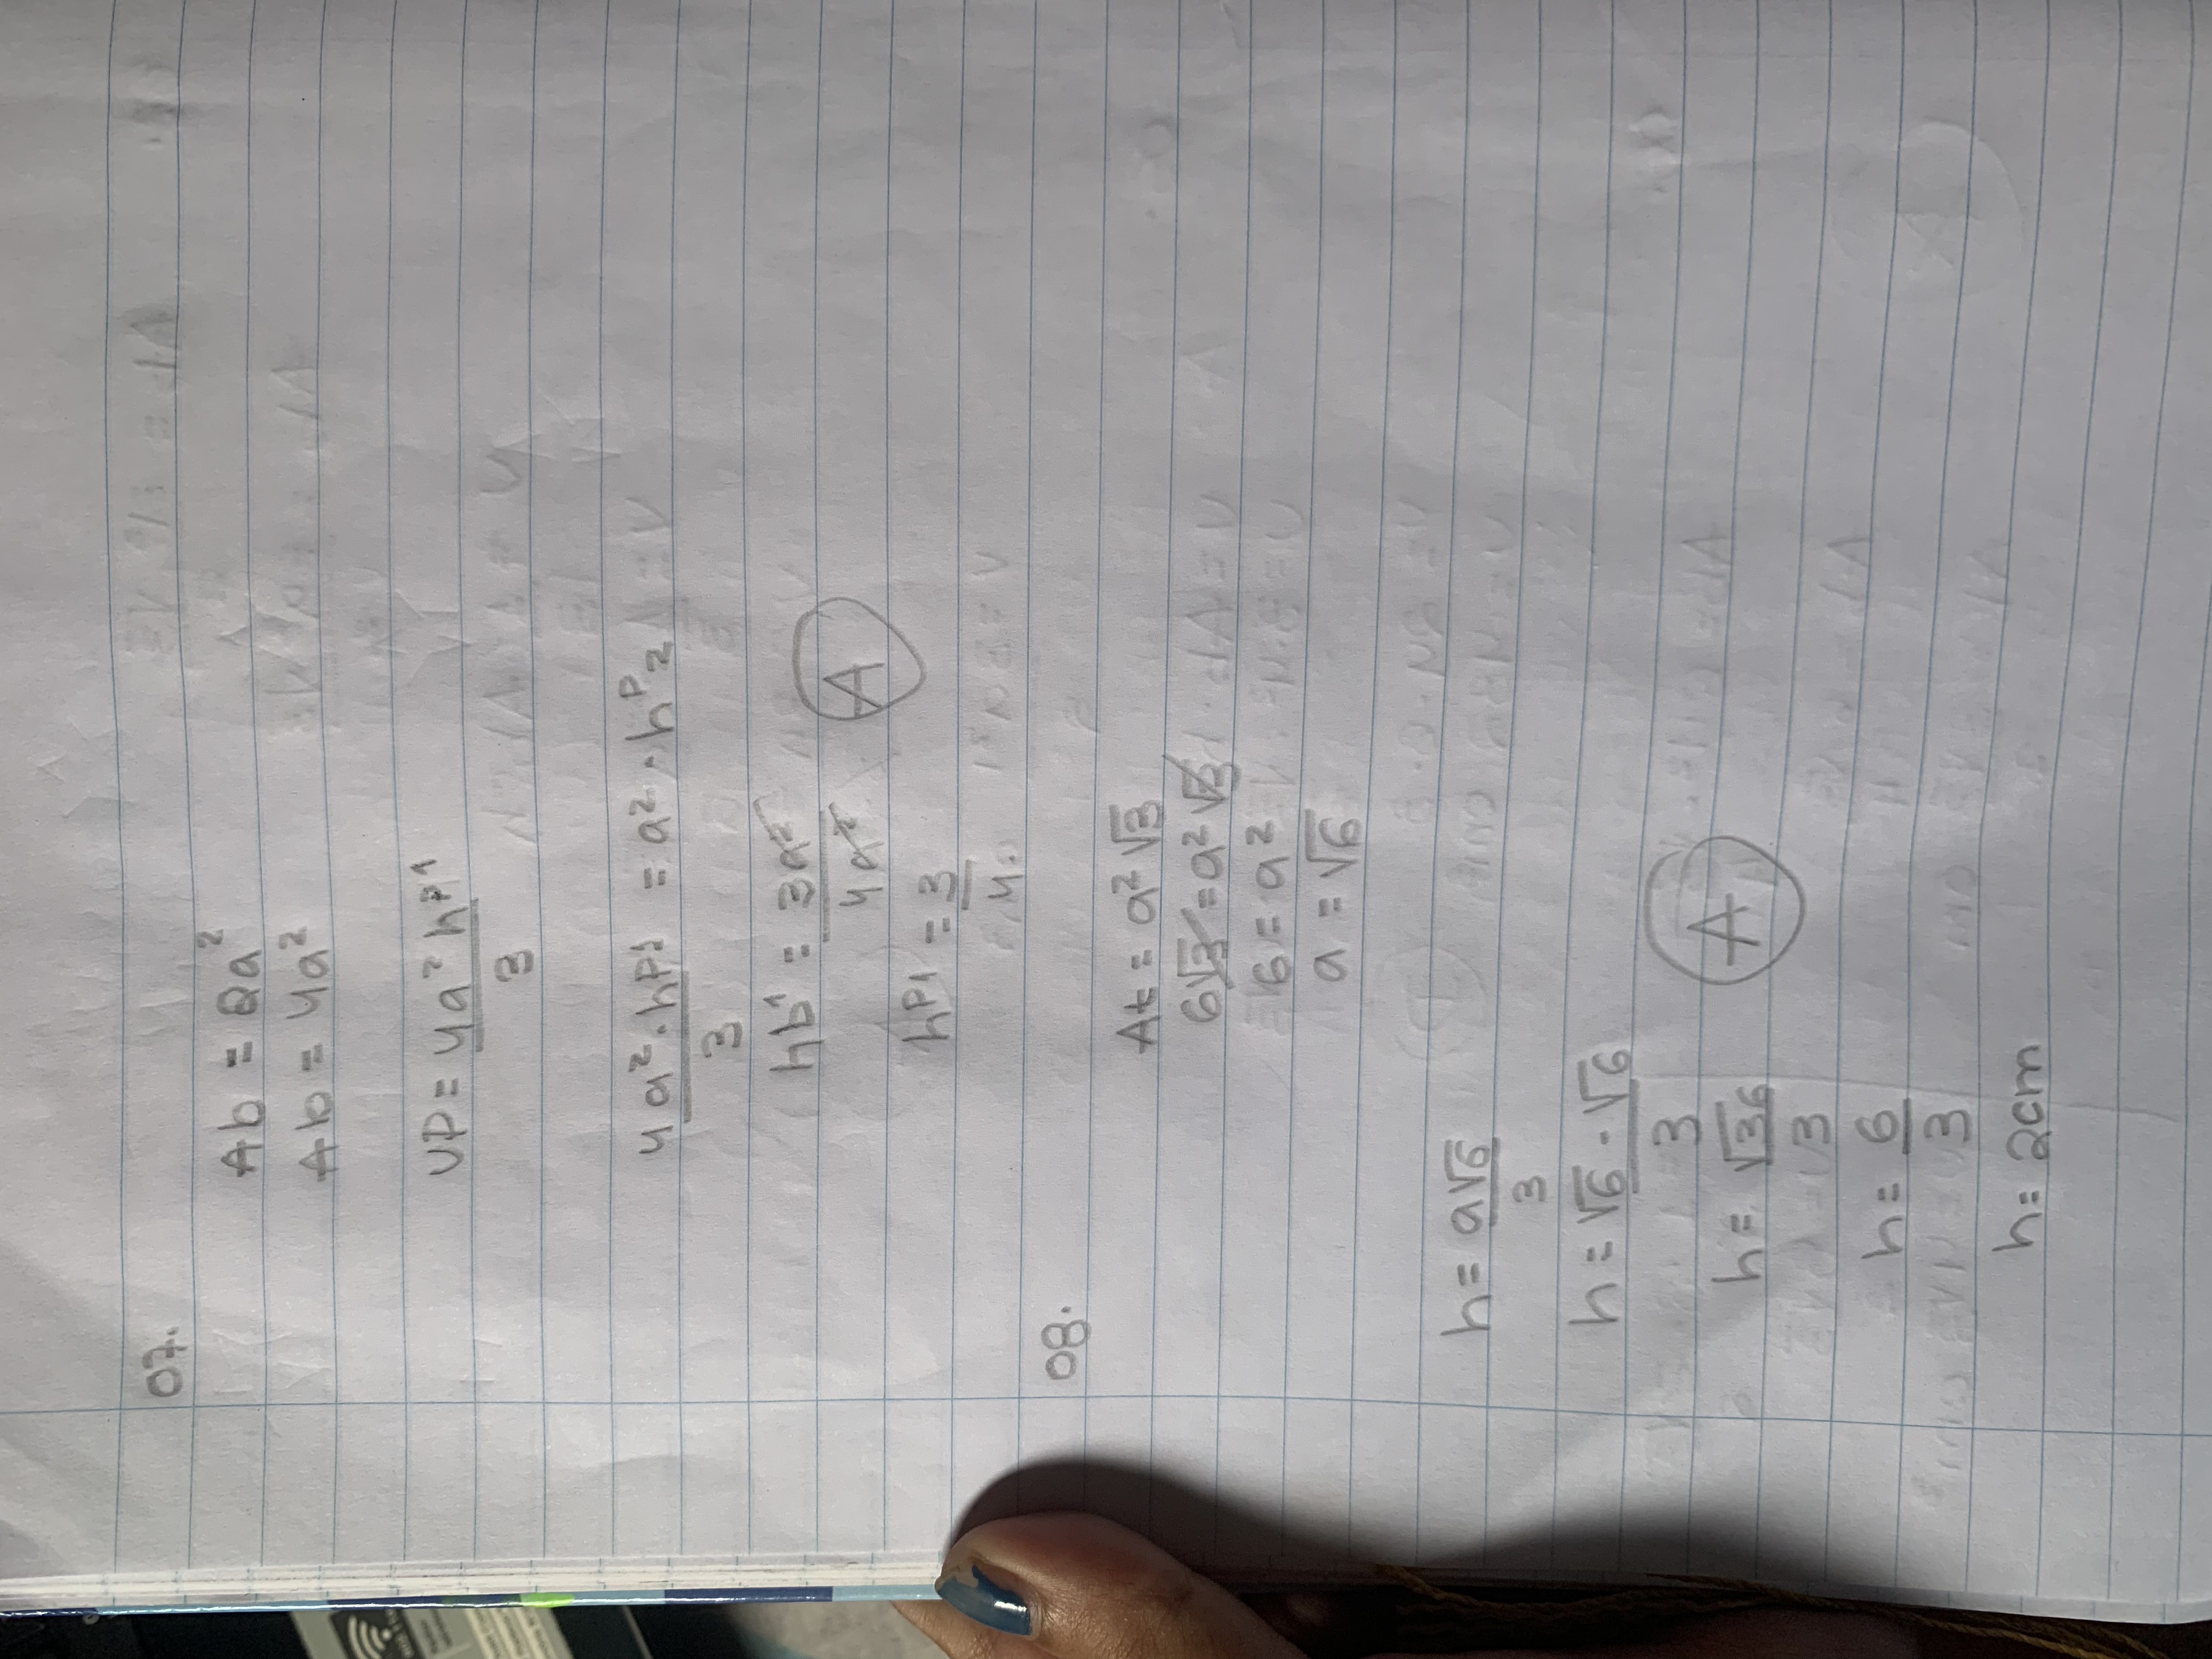 07.
Ab = 2a²
Ab = 4a²
VP = 4a² hP1 / 3
4a² · hP1 / 3 = a² · hP2
hb1 = 3a² / 4a²
A
hP1 = 3 / 4.
08.
At = a² √3
6√3 = a² √3
6 = a²
a = √6
h = a√6 / 3
h = √6 · √6 / 3
A
h = √36 / 3
h = 6 / 3
h = 2cm